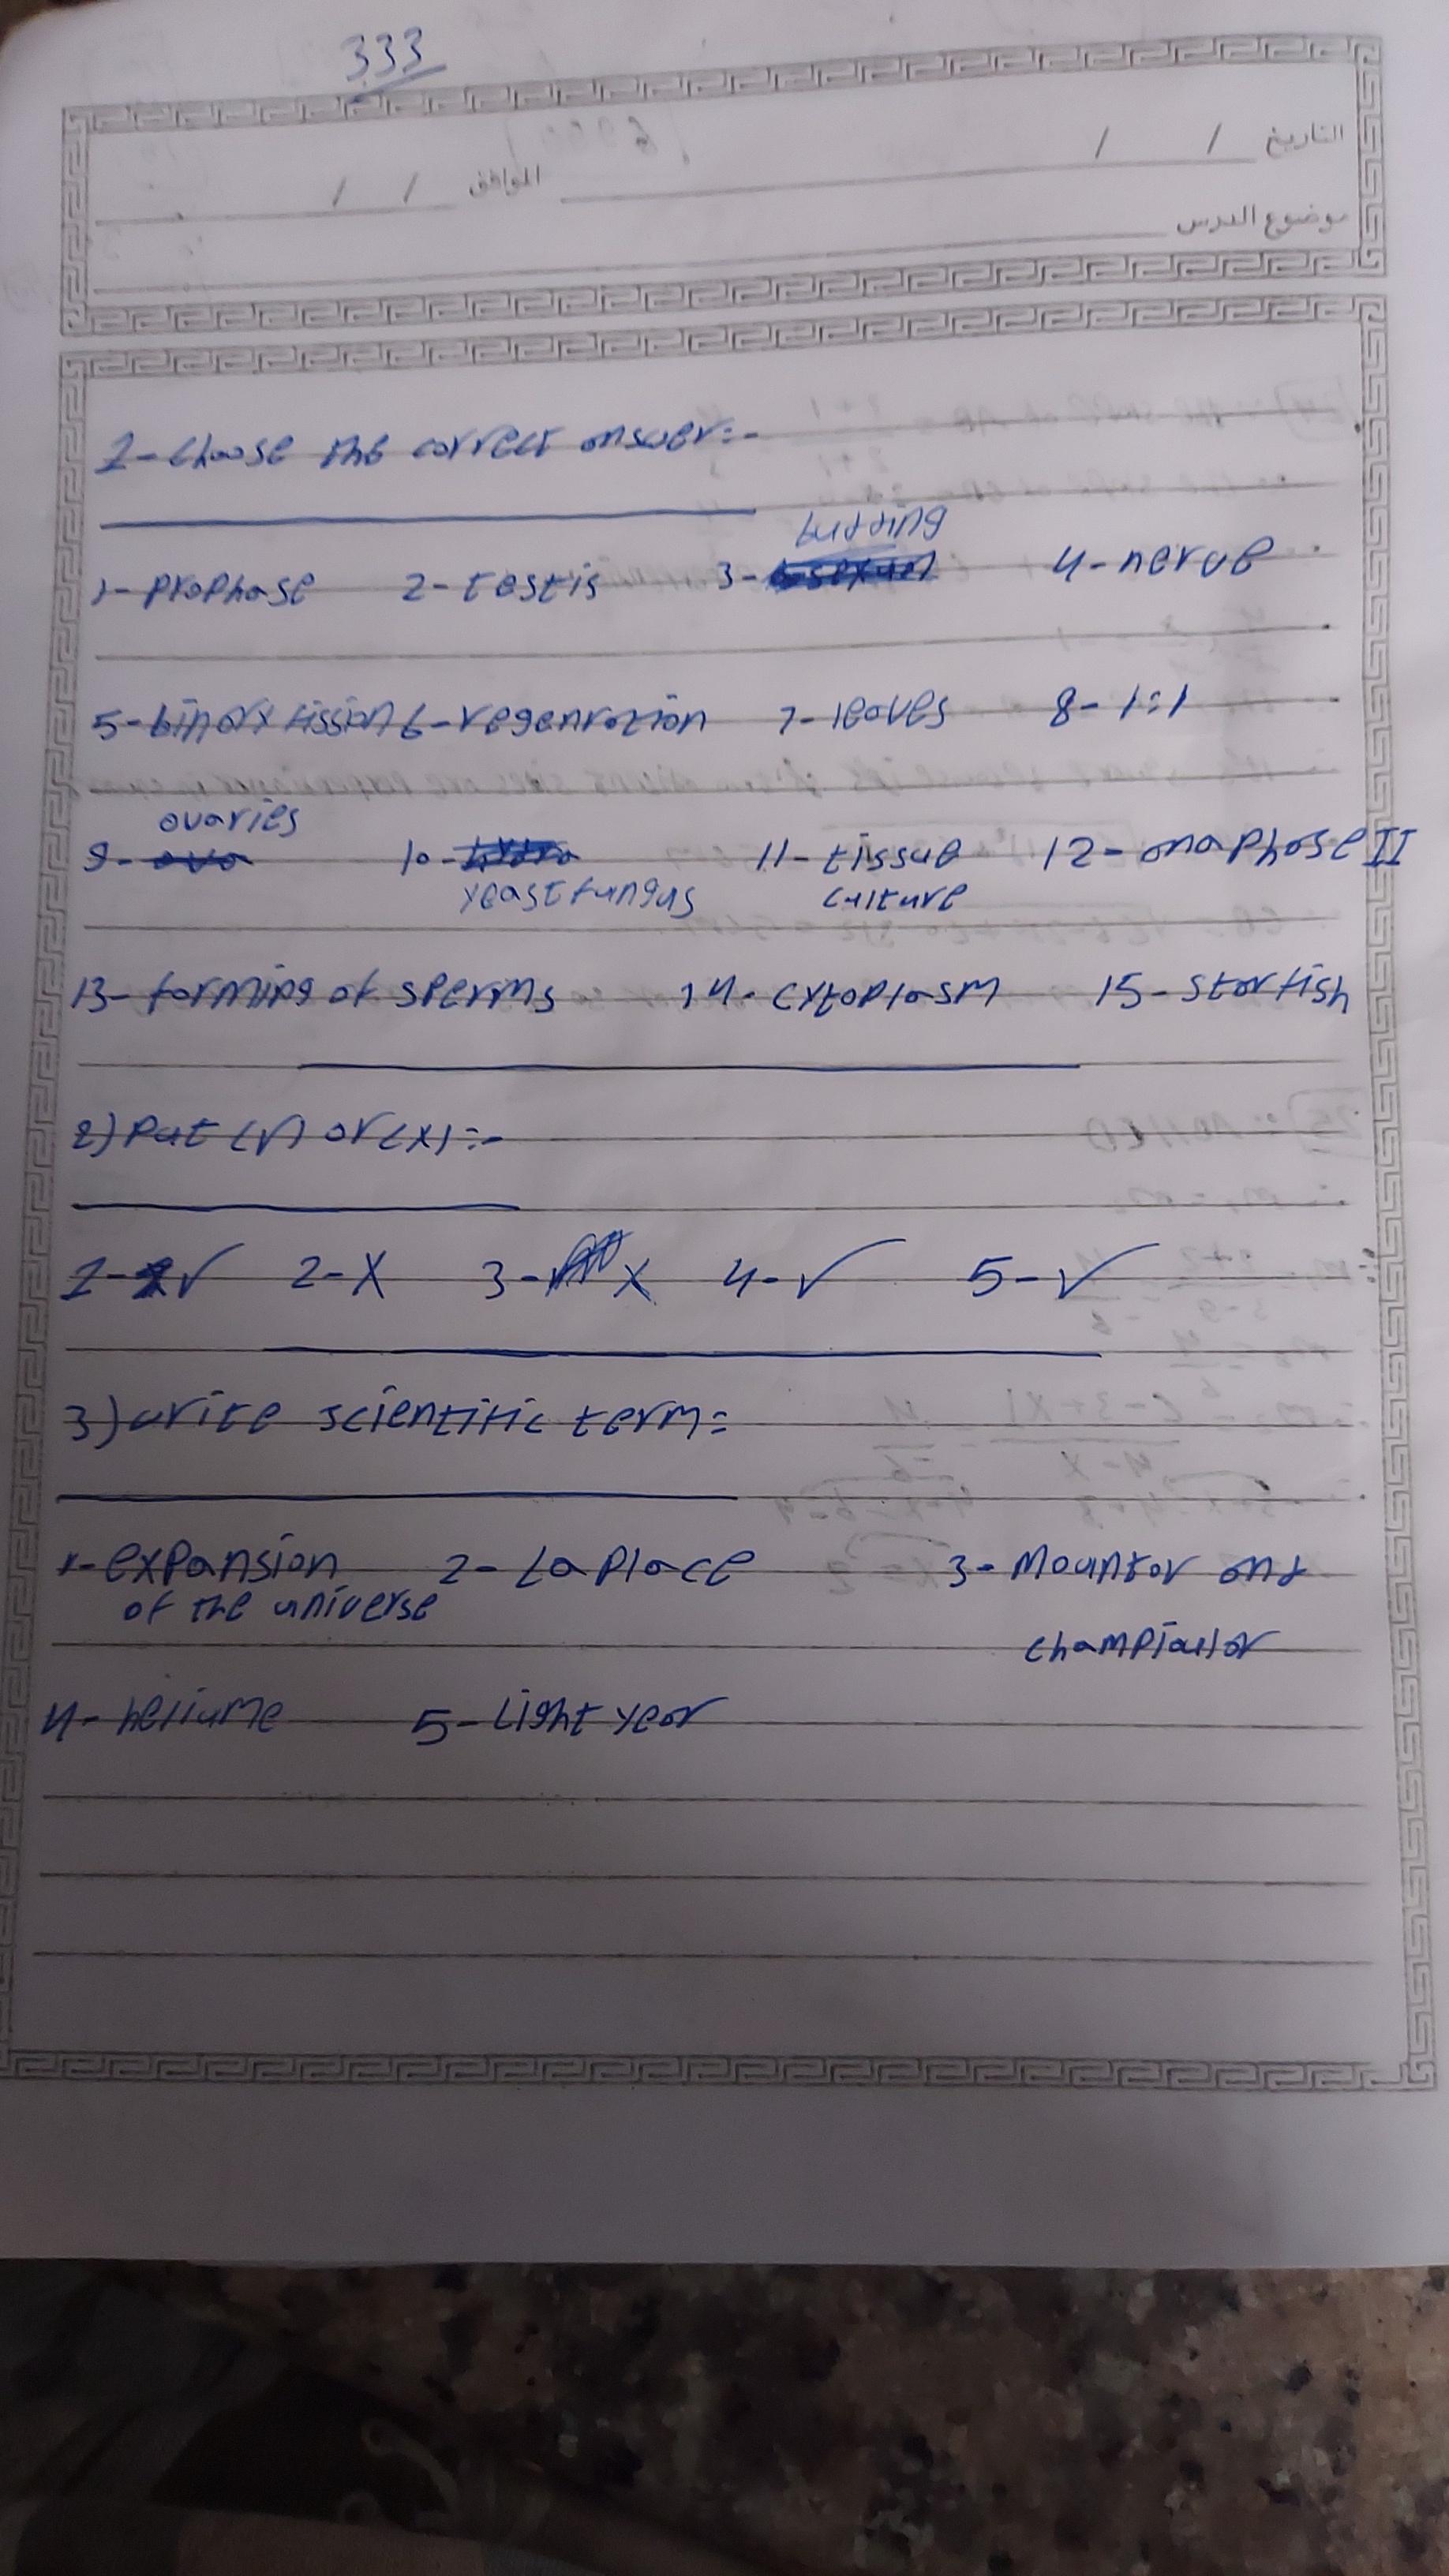 333
التاريخ / /
الموافق / /
موضوع الدرس
1-choose the correct answer:-
budding
1- prophase 2- testis 3- 4- nerve
5- binary fission 6- regenration 7- leaves 8- 1:1
ovaries
9- ova 10- hydra 11- tissue 12- anaphase II
yeast fungus culture
13- forming of sperms 14- cytoplasm 15- starfish
2) put (√) or (x):-
1- √ 2- X 3- X 4- √ 5- √
3) write scientific term:
1- expansion 2- Laplace 3- Mountor and
of the universe
champlailor
4- heliume 5- Light year